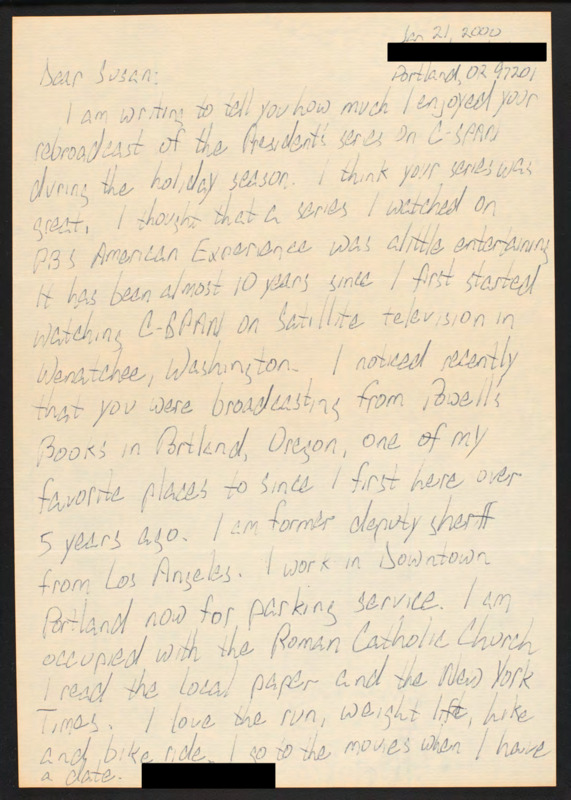 Jan 21, 2000
Portland, OR 97201
Dear Susan:
I am writing to tell you how much I enjoyed your
rebroadcast of the Presidents series on C-SPAN
during the holiday season. I think your series was
great. I thought that a series I watched on
PBS American Experience was alittle entertaining
It has been almost 10 years since I first started
watching C-SPAN on Satillite television in
Wenatchee, Washington. I noticed recently
that you were broadcasting from Powells
Books in Portland, Oregon, one of my
favorite places to since I first here over
5 years ago. I am former deputy sheriff
from Los Angeles. I work in Downtown
Portland now for parking service. I am
occupied with the Roman Catholic Church
I read the local paper and the New York
Times. I love the run, weight lift, hike
and bike ride. I go to the movies when I have
a date.